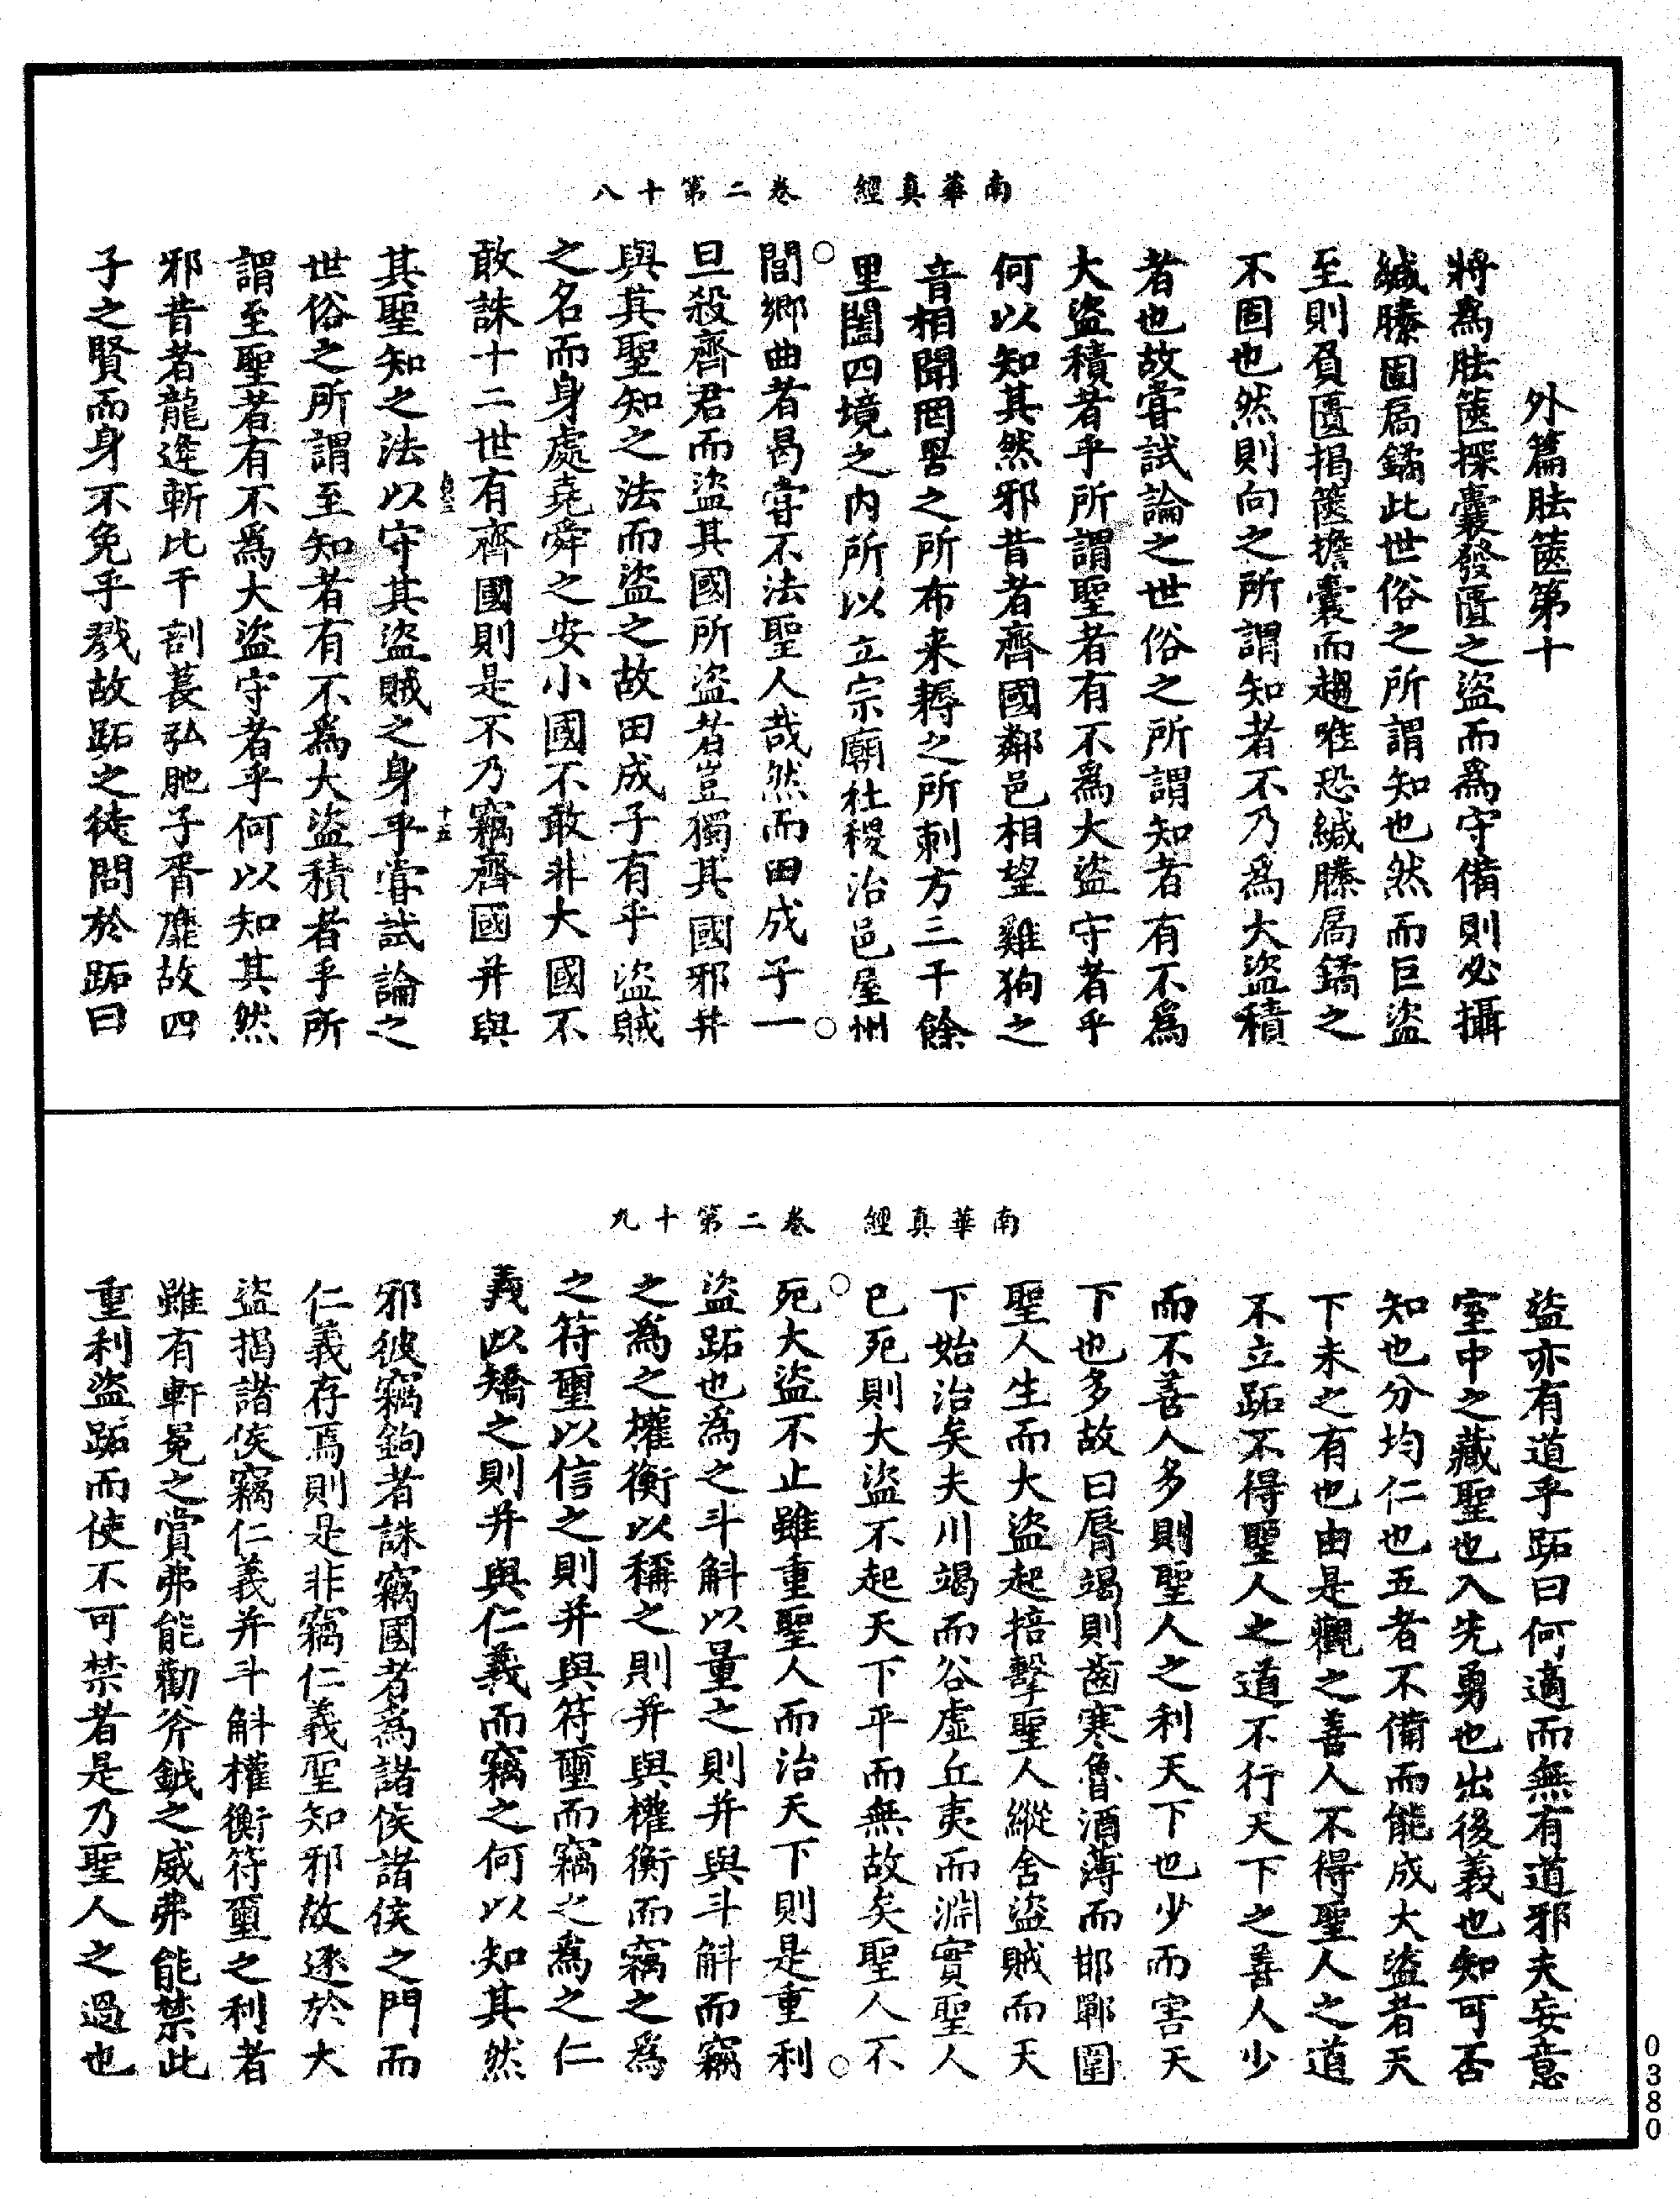 南華真經　卷二第十八
外篇胠篋第十
將爲胠篋探囊發匱之盜而爲守備則必攝
緘縢固扃鐍此世俗之所謂知也然而巨盜
至則負匱揭篋擔囊而趨唯恐緘縢扃鐍之
不固也然則向之所謂知者不乃爲大盜積
者也故嘗試論之世俗之所謂知者有不爲
大盜積者乎所謂聖者有不爲大盜守者乎
何以知其然邪昔者齊國鄰邑相望雞狗之
音相聞罔罟之所布耒耨之所刺方二千餘
里闔四境之內所以立宗廟社稷治邑屋州
閭鄉曲者曷嘗不法聖人哉然而田成子一
旦殺齊君而盜其國所盜者豈獨其國邪并
與其聖知之法而盜之故田成子有乎盜賊
之名而身處堯舜之安小國不敢非大國不
敢誅十二世有齊國則是不乃竊齊國并與
其聖知之法以守其盜賊之身乎嘗試論之
十五
世俗之所謂至知者有不爲大盜積者乎所
謂至聖者有不爲大盜守者乎何以知其然
邪昔者龍逄斬比干剖萇弘胣子胥靡故四
子之賢而身不免乎戮故跖之徒問於跖曰
南華真經　卷二第十九
盜亦有道乎跖曰何適而無有道邪夫妄意
室中之藏聖也入先勇也出後義也知可否
知也分均仁也五者不備而能成大盜者天
下未之有也由是觀之善人不得聖人之道
不立跖不得聖人之道不行天下之善人少
而不善人多則聖人之利天下也少而害天
下也多故曰脣竭則齒寒魯酒薄而邯鄲圍
聖人生而大盜起掊擊聖人縱舍盜賊而天
下始治矣夫川竭而谷虛丘夷而淵實聖人
已死則大盜不起天下平而無故矣聖人不
死大盜不止雖重聖人而治天下則是重利
盜跖也爲之斗斛以量之則并與斗斛而竊
之爲之權衡以稱之則并與權衡而竊之爲
之符璽以信之則并與符璽而竊之爲之仁
義以矯之則并與仁義而竊之何以知其然
邪彼竊鉤者誅竊國者爲諸侯諸侯之門而
仁義存焉則是非竊仁義聖知邪故逐於大
盜揭諸侯竊仁義并斗斛權衡符璽之利者
雖有軒冕之賞弗能勸斧鉞之威弗能禁此
重利盜跖而使不可禁者是乃聖人之過也
0380